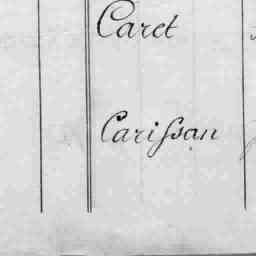 Caret
Carissan